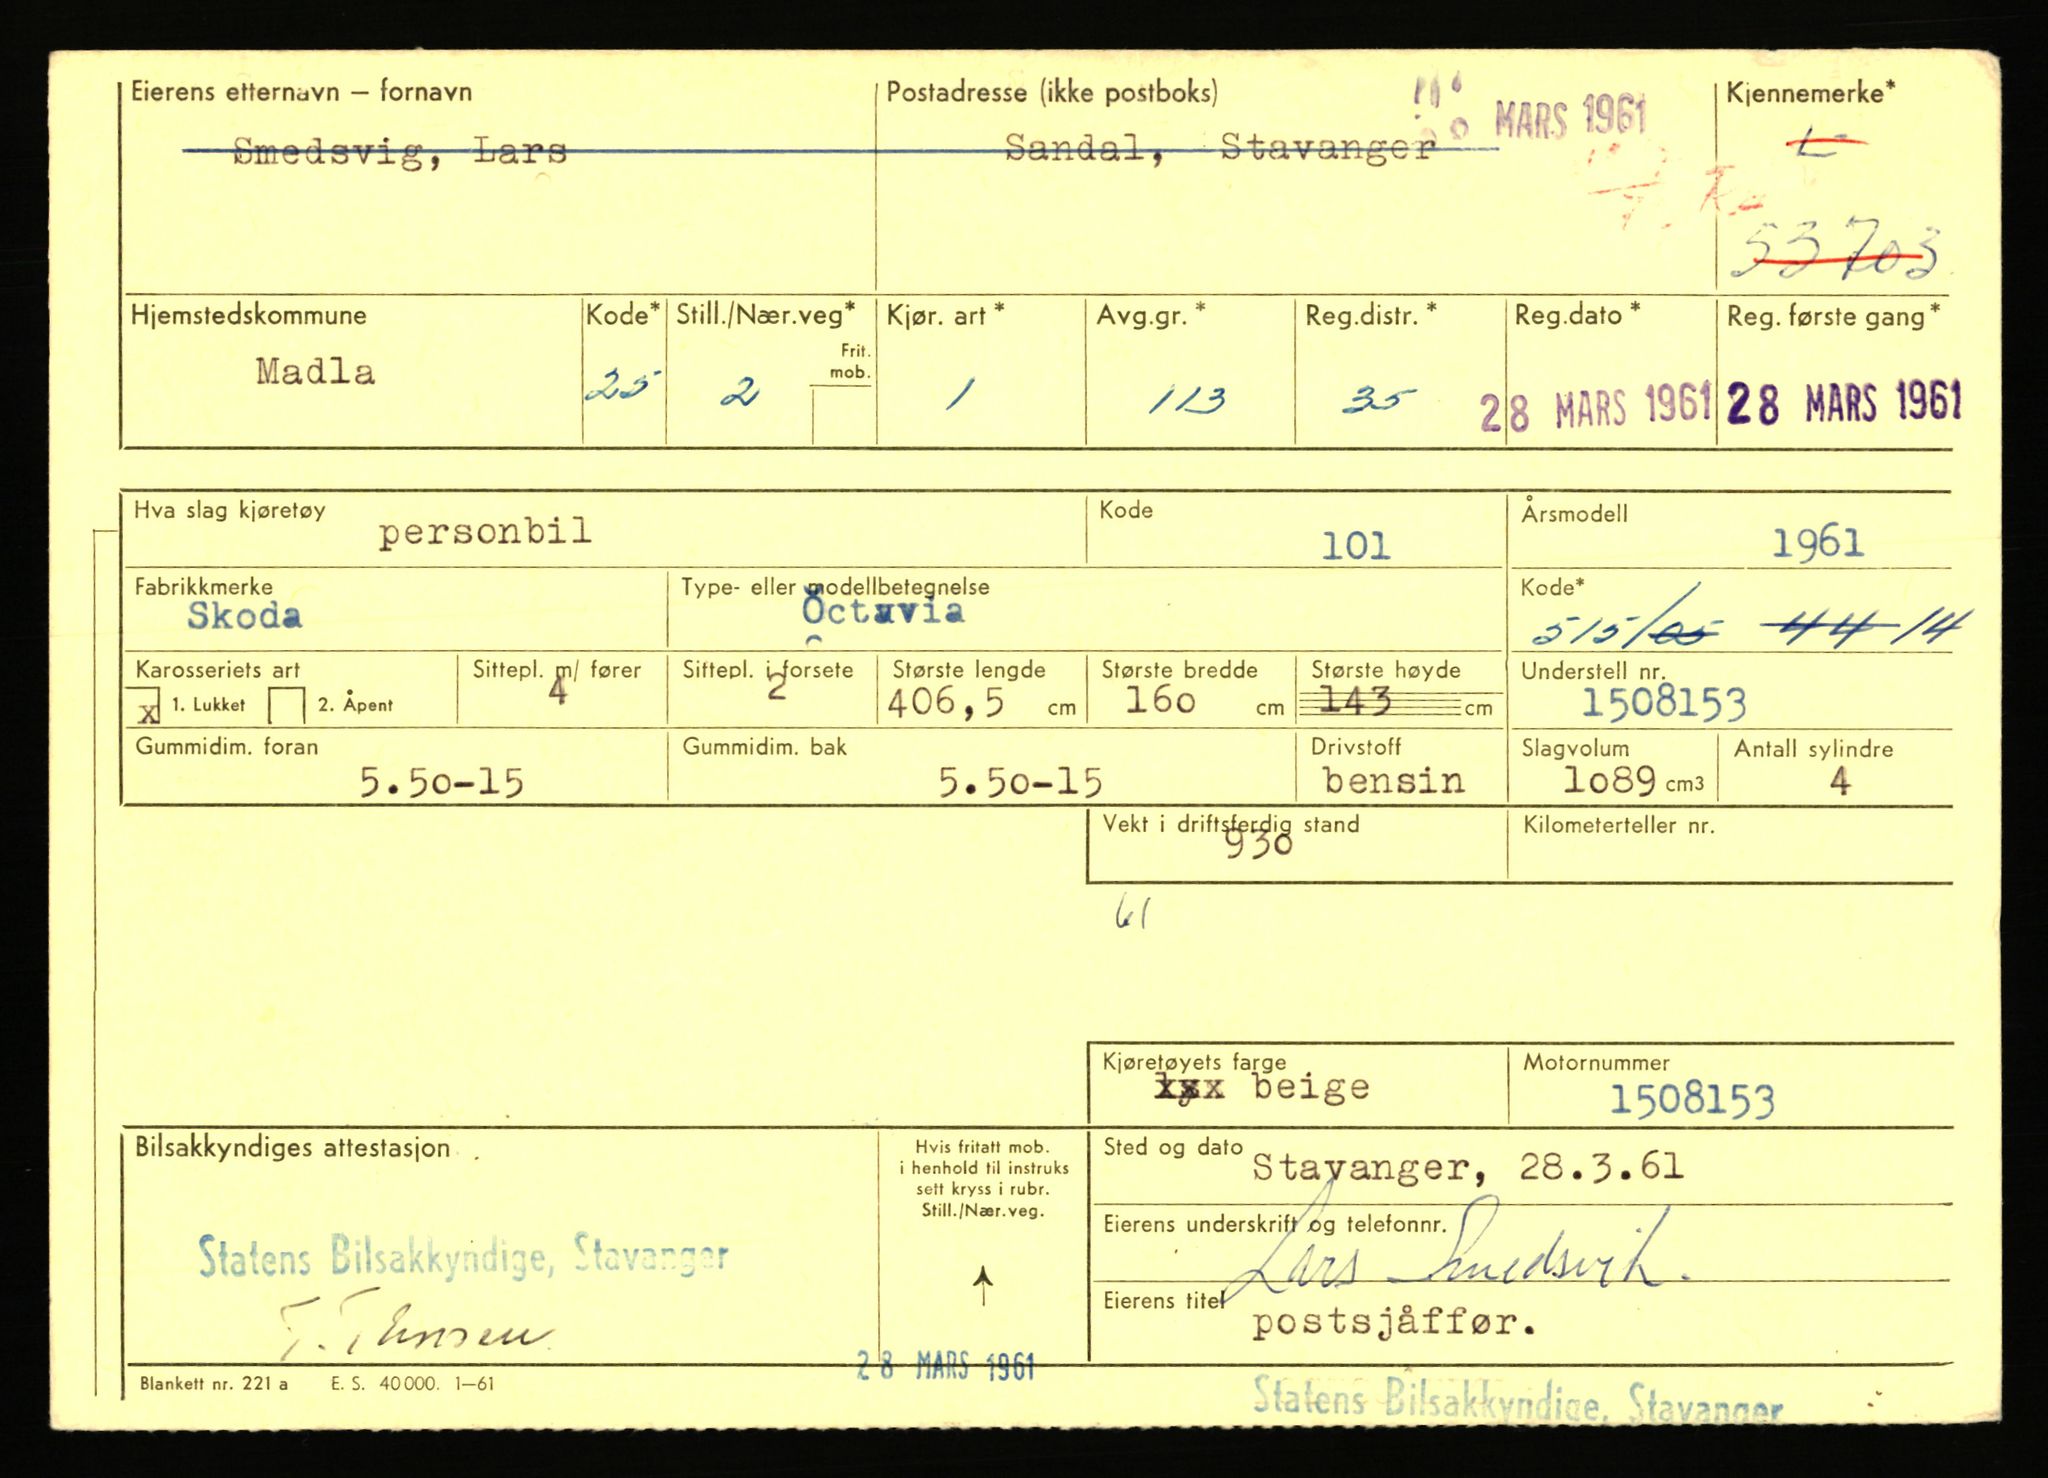 Eierens etternavn – fornavn Postadresse (ikke postboks) Kjennemerke*
MARS 1961
Smedsvig, Lars Sandal, Stavanger L-
53703
Hjemstedskommune Kode* Still./Nær.veg* Kjør. art * Avg.gr. * Reg.distr. * Reg.dato * Reg. første gang *
Frit.
mob.
Madla 25 2 1 113 35 28 MARS 1961 28 MARS 1961
Hva slag kjøretøy Kode Årsmodell
personbil 101 1961
Fabrikkmerke Type- eller modellbetegnelse Kode*
Skoda Octavia 515/05 44 14
Karosseriets art Sittepl. m/ fører Sittepl. i forsete Største lengde Største bredde Største høyde Understell nr.
x 1. Lukket 2. Åpent 4 2 406,5 cm 160 cm 143 cm 1508153
Gummidim. foran Gummidim. bak Drivstoff Slagvolum Antall sylindre
5.50-15 5.50-15 bensin 1089 cm3 4
Vekt i driftsferdig stand Kilometerteller nr.
930
61
Kjøretøyets farge Motornummer
beige 1508153
Bilsakkyndiges attestasjon Hvis fritatt mob. Sted og dato
i henhold til instruks
sett kryss i rubr.
Still./Nær.veg.
Stavanger, 28.3.61
Eierens underskrift og telefonnr.
Statens Bilsakkyndige, Stavanger
Lars Smedsvik.
Eierens titel
postsjåffør.
28 MARS 1961
Blankett nr. 221 a E. S. 40 000. 1–61
Statens Bilsakkyndige, Stavanger